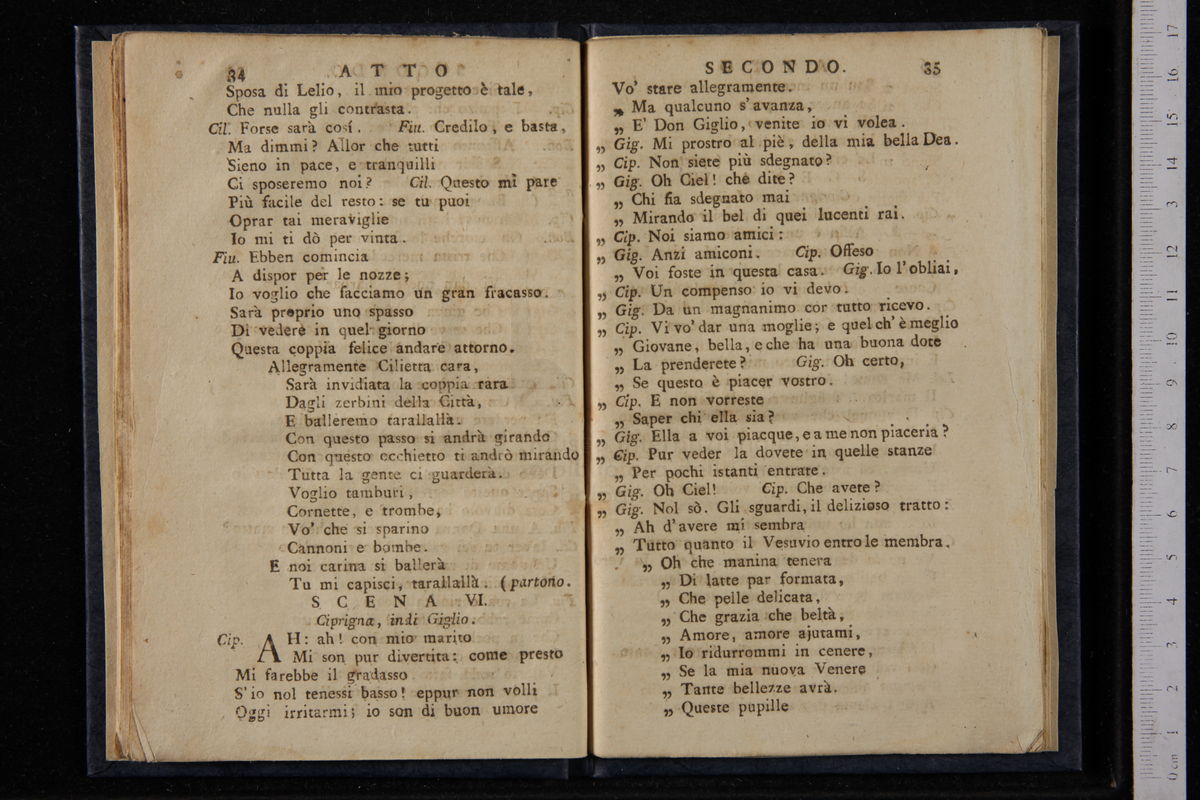 34 ATTO
Sposa di Lelio, il mio progetto è tale,
Che nulla gli contrasta.
Cil. Forse sarà così. Fiu. Credilo, e basta,
Ma dimmi? Allor che tutti
Sieno in pace, e tranquilli
Ci sposeremo noi? Cil. Questo mi pare
Più facile del resto: se tu puoi
Oprar tai meraviglie
Io mi ti dò per vinta.
Fiu. Ebben comincia
A dispor per le nozze;
Io voglio che facciamo un gran fracasso.
Sarà proprio uno spasso
Di vedere in quel giorno
Questa coppia felice andare attorno.
Allegramente Cilietta cara,
Sarà invidiata la coppia rara
Dagli zerbini della Città,
E balleremo tarallallà.
Con questo passo si andrà girando
Con questo occhietto ti andrò mirando
Tutta la gente ci guarderà.
Voglio tamburi,
Cornette, e trombe,
Vo' che si sparino
Cannoni e bombe.
E noi carina si ballerà
Tu mi capisci, tarallallà. (partono.
SCENA VI.
Ciprigna, indi Giglio.
Cip. AH: ah! con mio marito
Mi son pur divertita: come presto
Mi farebbe il gradasso
S'io nol tenessi basso! eppur non volli
Oggi irritarmi; io son di buon umore
SECONDO. 35
Vo' stare allegramente.
„ Ma qualcuno s'avanza,
„ E' Don Giglio, venite io vi volea.
„ Gig. Mi prostro al piè, della mia bella Dea.
„ Cip. Non siete più sdegnato?
„ Gig. Oh Ciel! che dite?
„ Chi fia sdegnato mai
„ Mirando il bel di quei lucenti rai.
„ Cip. Noi siamo amici:
„ Gig. Anzi amiconi. Cip. Offeso
„ Voi foste in questa casa. Gig. Io l'obliai,
„ Cip. Un compenso io vi devo.
„ Gig. Da un magnanimo cor tutto ricevo.
„ Cip. Vi vo' dar una moglie; e quel ch'è meglio
„ Giovane, bella, e che ha una buona dote
„ La prenderete? Gig. Oh certo,
„ Se questo è piacer vostro.
„ Cip. E non vorreste
„ Saper chi ella sia?
„ Gig. Ella a voi piacque, e a me non piaceria?
„ Cip. Pur veder la dovete in quelle stanze
„ Per pochi istanti entrate.
„ Gig. Oh Ciel! Cip. Che avete?
„ Gig. Nol sò. Gli sguardi, il delizioso tratto:
„ Ah d'avere mi sembra
„ Tutto quanto il Vesuvio entro le membra.
„ Oh che manina tenera
„ Di latte par formata,
„ Che pelle delicata,
„ Che grazia che beltà,
„ Amore, amore ajutami,
„ Io ridurrommi in cenere,
„ Se la mia nuova Venere
„ Tante bellezze avrà.
„ Queste pupille
0 cm 1 2 3 4 5 6 7 8 9 10 11 12 13 14 15 16 17